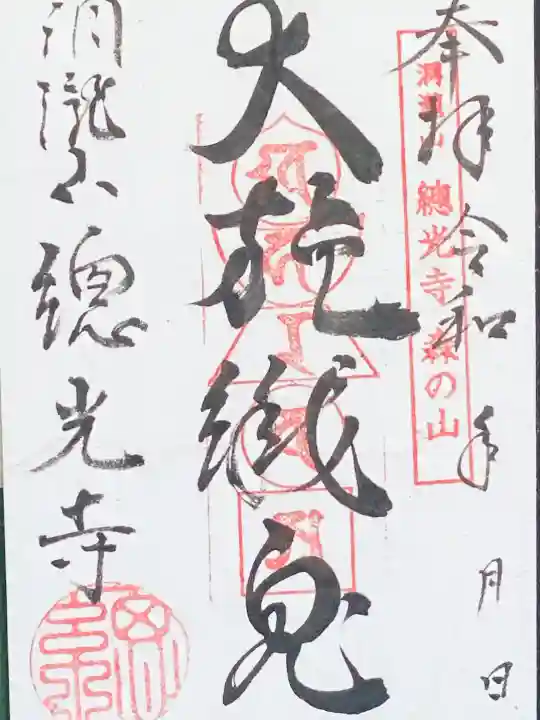 奉拝 令和 年 月 日
洞瀧山 總光寺 森の山
大施餓鬼
洞瀧山 總光寺